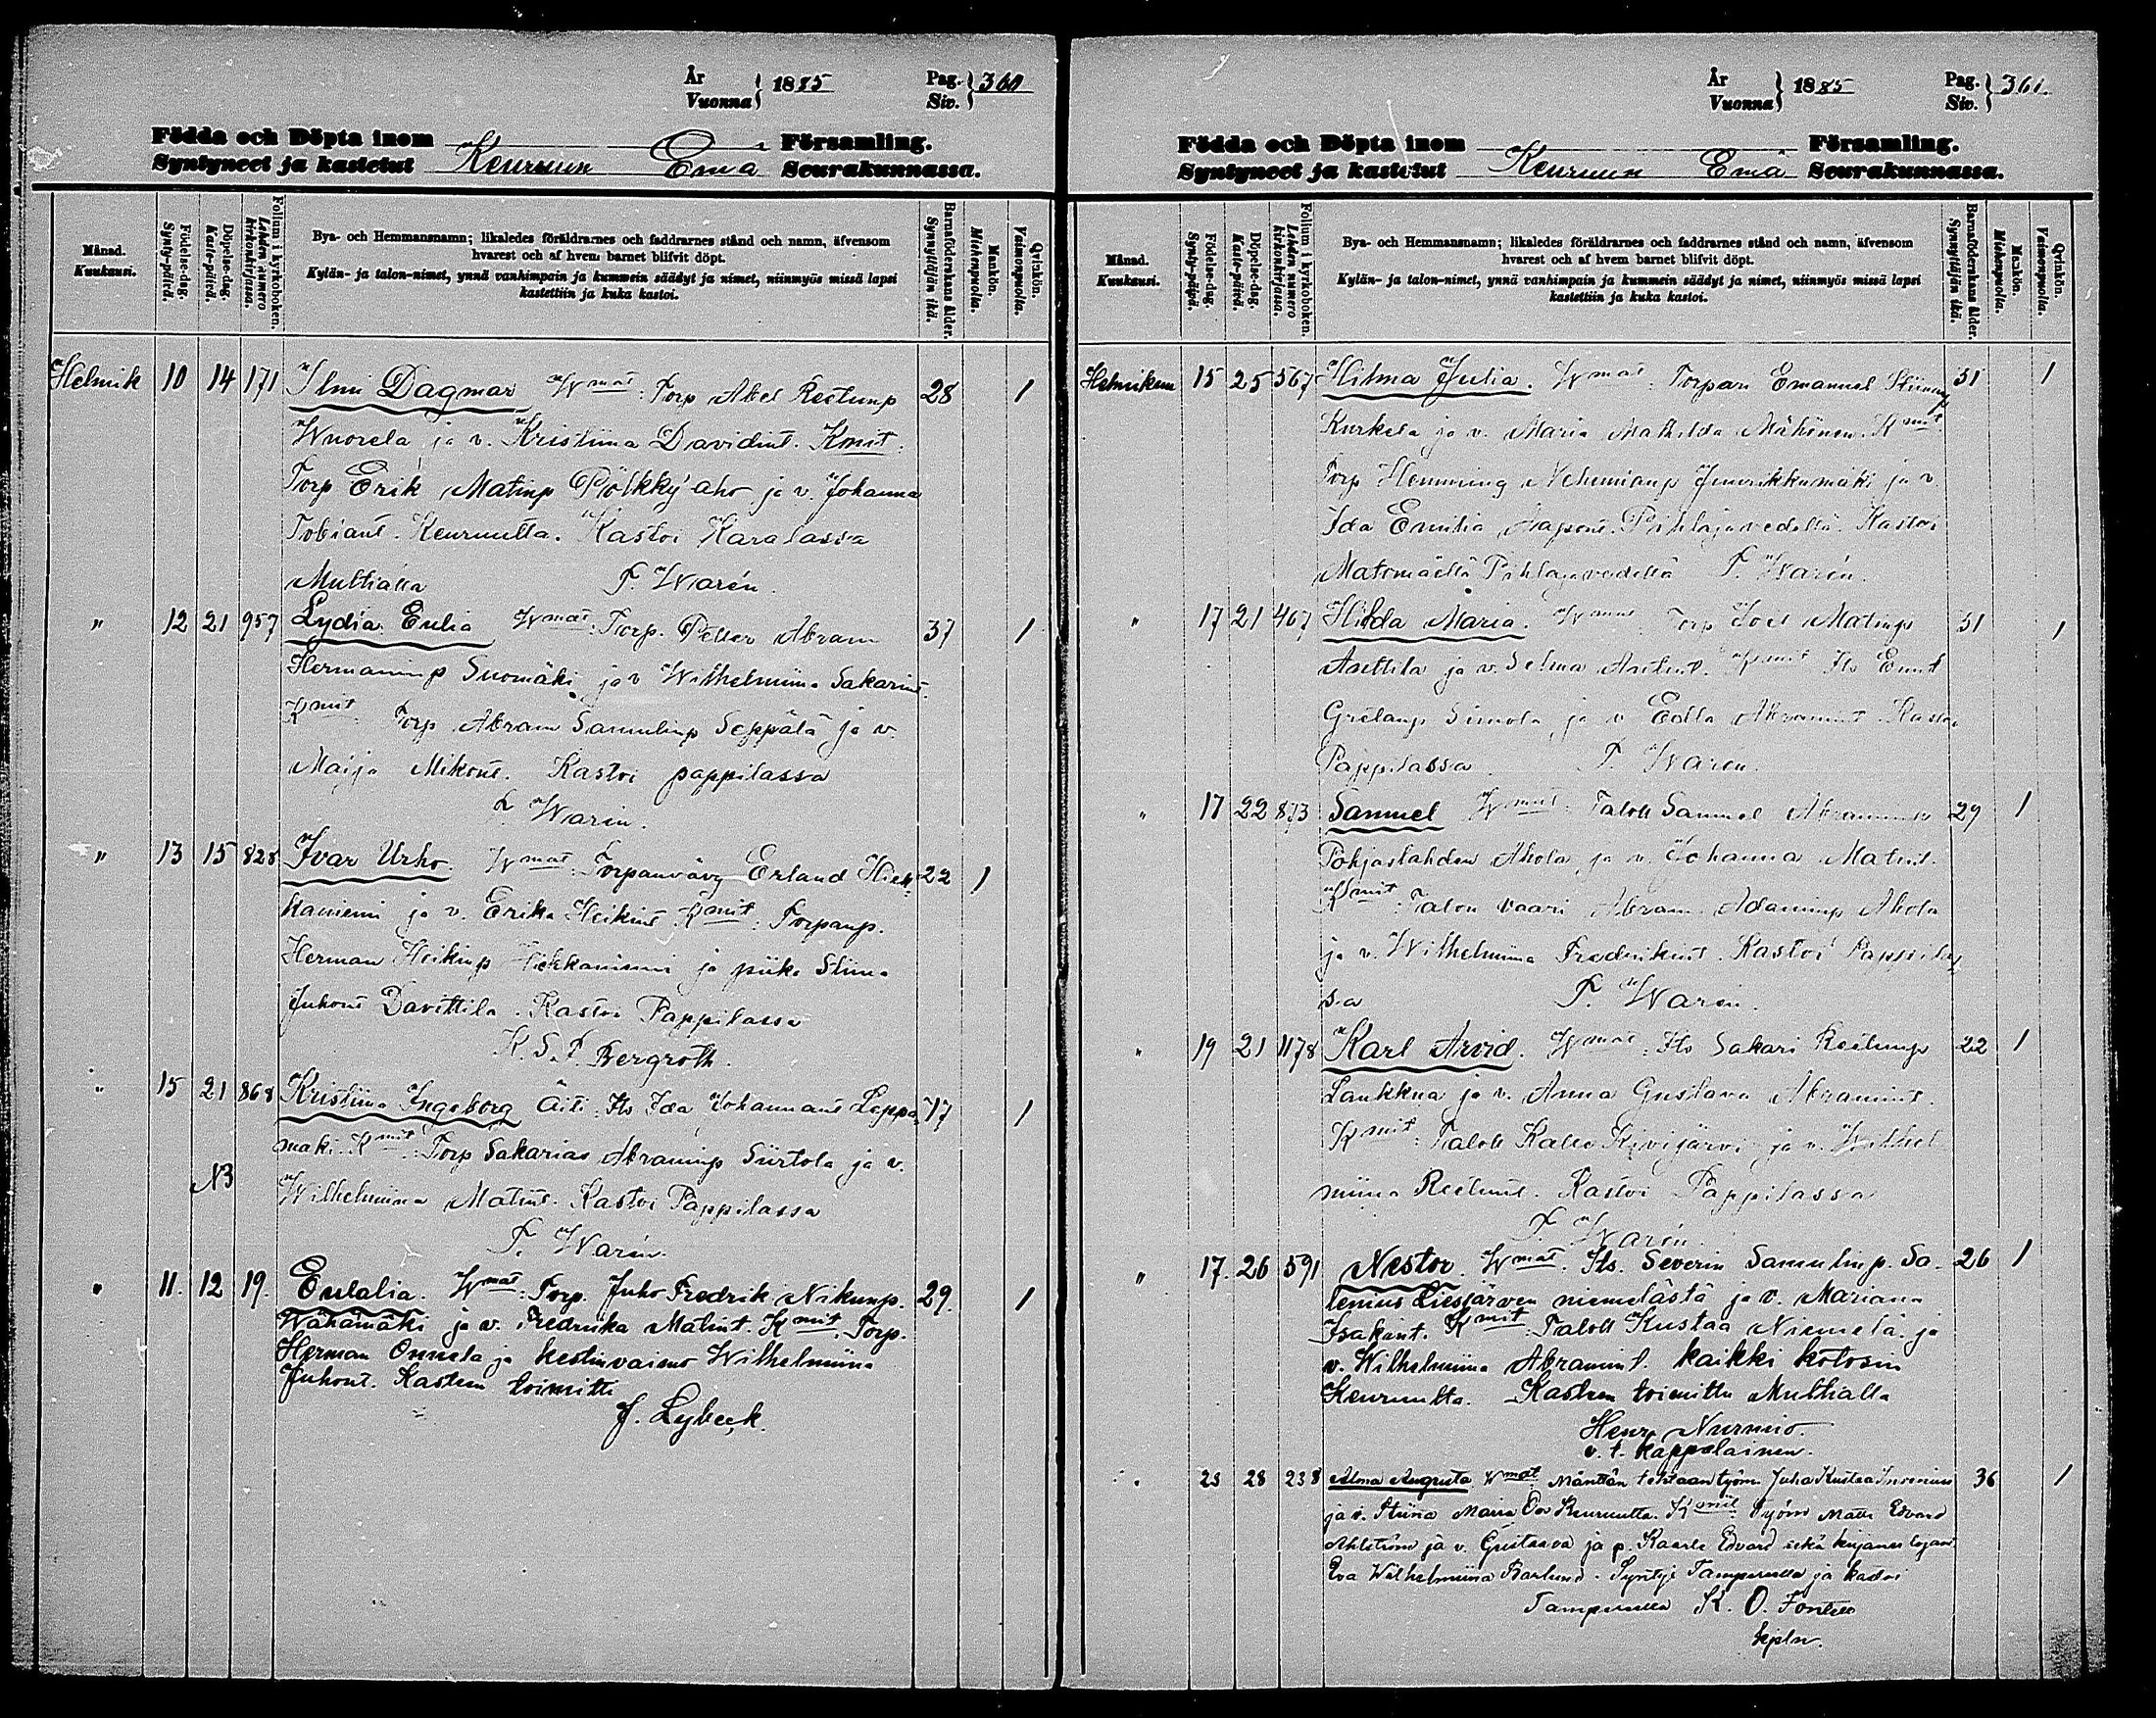 År
Vuonna } 1885
Pag.
Siv. } 360
Födda och Döpta inom Församling.
Syntyneet ja kastetut Keuruun Emä Seurakunnassa.
Månad.
Kuukausi.
Födelse-dag.
Synty-päivä.
Döpelse-dag.
Kaste-päivä.
Folium i kyrkoboken.
Lehden numero kirkonkirjassa.
Bya- och Hemmansnamn; likaledes föräldrarnes och faddrarnes stånd och namn, äfvensom
hvarest och af hvem barnet blifvit döpt.
Kylän- ja talon-nimet, ynnä vanhimpain ja kummein säädyt ja nimet, niinmyös missä lapsi
kastettiin ja kuka kastoi.
Barnaföderskans ålder.
Synnyttäjän ikä.
Mankön.
Miehenpuolia.
Qvinkön.
Vaimonpuolia.
Helmik 10 14 171 Ilmi Dagmar Wmat: Torp Abel Reetunp 28 1
Wuorela ja v. Kristiina Davidint. Kmit:
Torp Erik Matinp Pölkkyaho ja v. Johanna
Tobiant. Keuruulta. Kastoi Karalassa
Multialla F. Warén.
" 12 21 957 Lydia Eulia Wmat: Torp. Petter Abram 37 1
Hermaninp Suomäki ja v Wilhelmiina Sakarint.
Kmit Torp Abram Samulinp Seppälä ja v.
Maija Mikont. Kastoi pappilassa
F. Warén.
" 13 15 828 Ivar Urho. Wmat: Torpanvävy Erland Hiek- 22 1
kaniemi ja v. Erika Heikint Kmit: Torpanp.
Herman Heikinp Hiekkaniemi ja piika Stiina
Juhont Davittila. Kastoi Pappilassa
K. S. F. Bergroth.
" 15 21 868 Kristiina Ingeborg Äiti: Its Ida Johannant Leppä- 17 1
mäki. Kmit: Torp Sakarias Abraminp Siirtola ja v.
NB Wilhelmiina Matint. Kastoi Pappilassa
F. Warén.
" 11. 12 19. Eulalia. Wmat: Torp. Juho Fredrik Nikunp. 29. 1
Wähämäki ja v. Fredrika Matint. Kmit: Torp.
Herman Onnela ja kestinvaimo Wilhelmiina
Juhont. Kasteen toimitti
J. Lybeck.
År
Vuonna } 1885
Pag.
Siv. } 361.
Födda och Döpta inom Församling.
Syntyneet ja kastetut Keuruun Emä Seurakunnassa.
Månad.
Kuukausi.
Födelse-dag.
Synty-päivä.
Döpelse-dag.
Kaste-päivä.
Folium i kyrkoboken.
Lehden numero kirkonkirjassa.
Bya- och Hemmansnamn; likaledes föräldrarnes och faddrarnes stånd och namn, äfvensom
hvarest och af hvem barnet blifvit döpt.
Kylän- ja talon-nimet, ynnä vanhimpain ja kummein säädyt ja nimet, niinmyös missä lapsi
kastettiin ja kuka kastoi.
Barnaföderskans ålder.
Synnyttäjän ikä.
Mankön.
Miehenpuolia.
Qvinkön.
Vaimonpuolia.
Helmikuu 15 25 567 Hilma Julia. Wmat: Torpan Emanuel 31 1
Kurkela ja v. Maria Mathilda Mähönen. Kmit:
Torp Hemming Nehemianp Jinrikkumäki ja v
Ida Emilia Aapont. Pihlajavedeltä. Kastoi
Matomäellä Pihlajavedellä F. Warén.
" 17 21 467 Hilda Maria. Wmat: Torp Joel Matinp 31 1
Anttila ja v. Selma Antint. Kmit Its
Simola ja v Edla Abramint Kastoi
Pappilassa F. Warén.
" 17 22 873 Samuel Wmat: Taloll Samuel Abraminp 29 1
Pohjaslahden Ahola ja v. Johanna Matint.
Kmit: Talon vaari Abram Adaminp Ahola
ja v. Wilhelmiina Fredrikint. Kastoi Pappilas-
sa F. Warén.
" 19 21 1178 Karl Arvid. Wmat: Its Sakari Reetunp 22 1
Laukkua ja v. Anna Gustava Abramint.
Kmit: Taloll Kalle Kivijärvi ja v. Wilhel-
miina Reetunt. Kastoi Pappilassa
F. Warén.
" 17. 26 591 Nestor. Wmat. Its. Severin Samulinp. Sa- 26 1
lenius Liesjärven niemelästä ja v. Mariana
Isakint. Kmit: Taloll Kustaa Niemelä ja
v. Wilhelmiina Abramint. kaikki kotosin
Keuruulta. Kasteen toimitti Multialla
Henr. Nurmio.
v. t. kappalainen.
" 23 28 238 Alma Augusta. Wmat: Mäntän tehtaan työm. Juha Kustaa Inrenius 36 1
ja v. Stiina Maria Keuruulta. Kmit: Työm Matti Edvard
Ahlström ja v. Gustaava ja p. Kaarle Edvard sekä
Eva Wilhelmiina Barlund. Syntyi Tampereella ja kastoi
Tampereella K. O. Fontell
kpln.